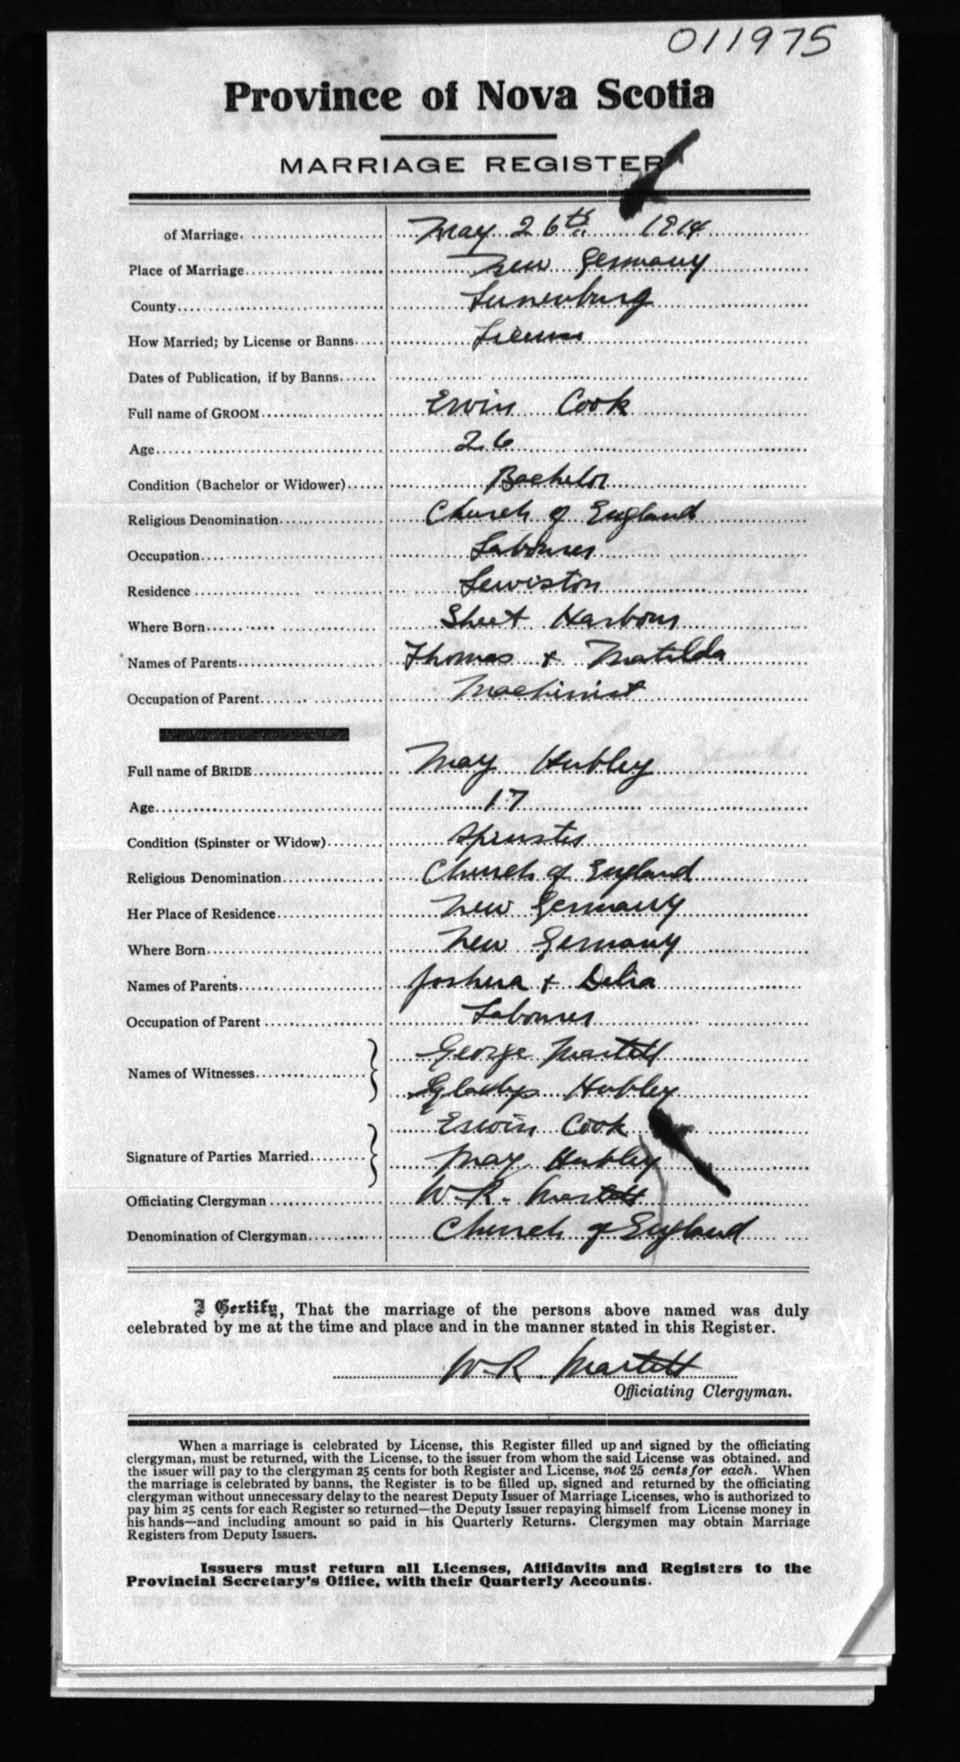 011975
Province of Nova Scotia
MARRIAGE REGISTER
of Marriage. May 26th 1914
Place of Marriage New Germany
County Lunenburg
How Married; by License or Banns License
Dates of Publication, if by Banns
Full name of GROOM Erwin Cook
Age 26
Condition (Bachelor or Widower) Bachelor
Religious Denomination Church of England
Occupation Labourer
Residence Lewiston
Where Born Sheet Harbour
Names of Parents Thomas + Matilda
Occupation of Parent Machinist
Full name of BRIDE May Hubley
Age 17
Condition (Spinster or Widow) Spinster
Religious Denomination Church of England
Her Place of Residence New Germany
Where Born New Germany
Names of Parents Joshua + Delia
Occupation of Parent Labourer
Names of Witnesses George Martell
Gladys Hubley
Signature of Parties Married Erwin Cook
May Hubley
Officiating Clergyman W. R. Martell
Denomination of Clergyman Church of England
I Certify, That the marriage of the persons above named was duly
celebrated by me at the time and place and in the manner stated in this Register.
W. R. Martell
Officiating Clergyman.
When a marriage is celebrated by License, this Register filled up and signed by the officiating
clergyman, must be returned, with the License, to the issuer from whom the said License was obtained, and
the issuer will pay to the clergyman 25 cents for both Register and License, not 25 cents for each. When
the marriage is celebrated by banns, the Register is to be filled up, signed and returned by the officiating
clergyman without unnecessary delay to the nearest Deputy Issuer of Marriage Licenses, who is authorized to
pay him 25 cents for each Register so returned—the Deputy Issuer repaying himself from License money in
his hands—and including amount so paid in his Quarterly Returns. Clergymen may obtain Marriage
Registers from Deputy Issuers.
Issuers must return all Licenses, Affidavits and Registers to the
Provincial Secretary's Office, with their Quarterly Accounts.